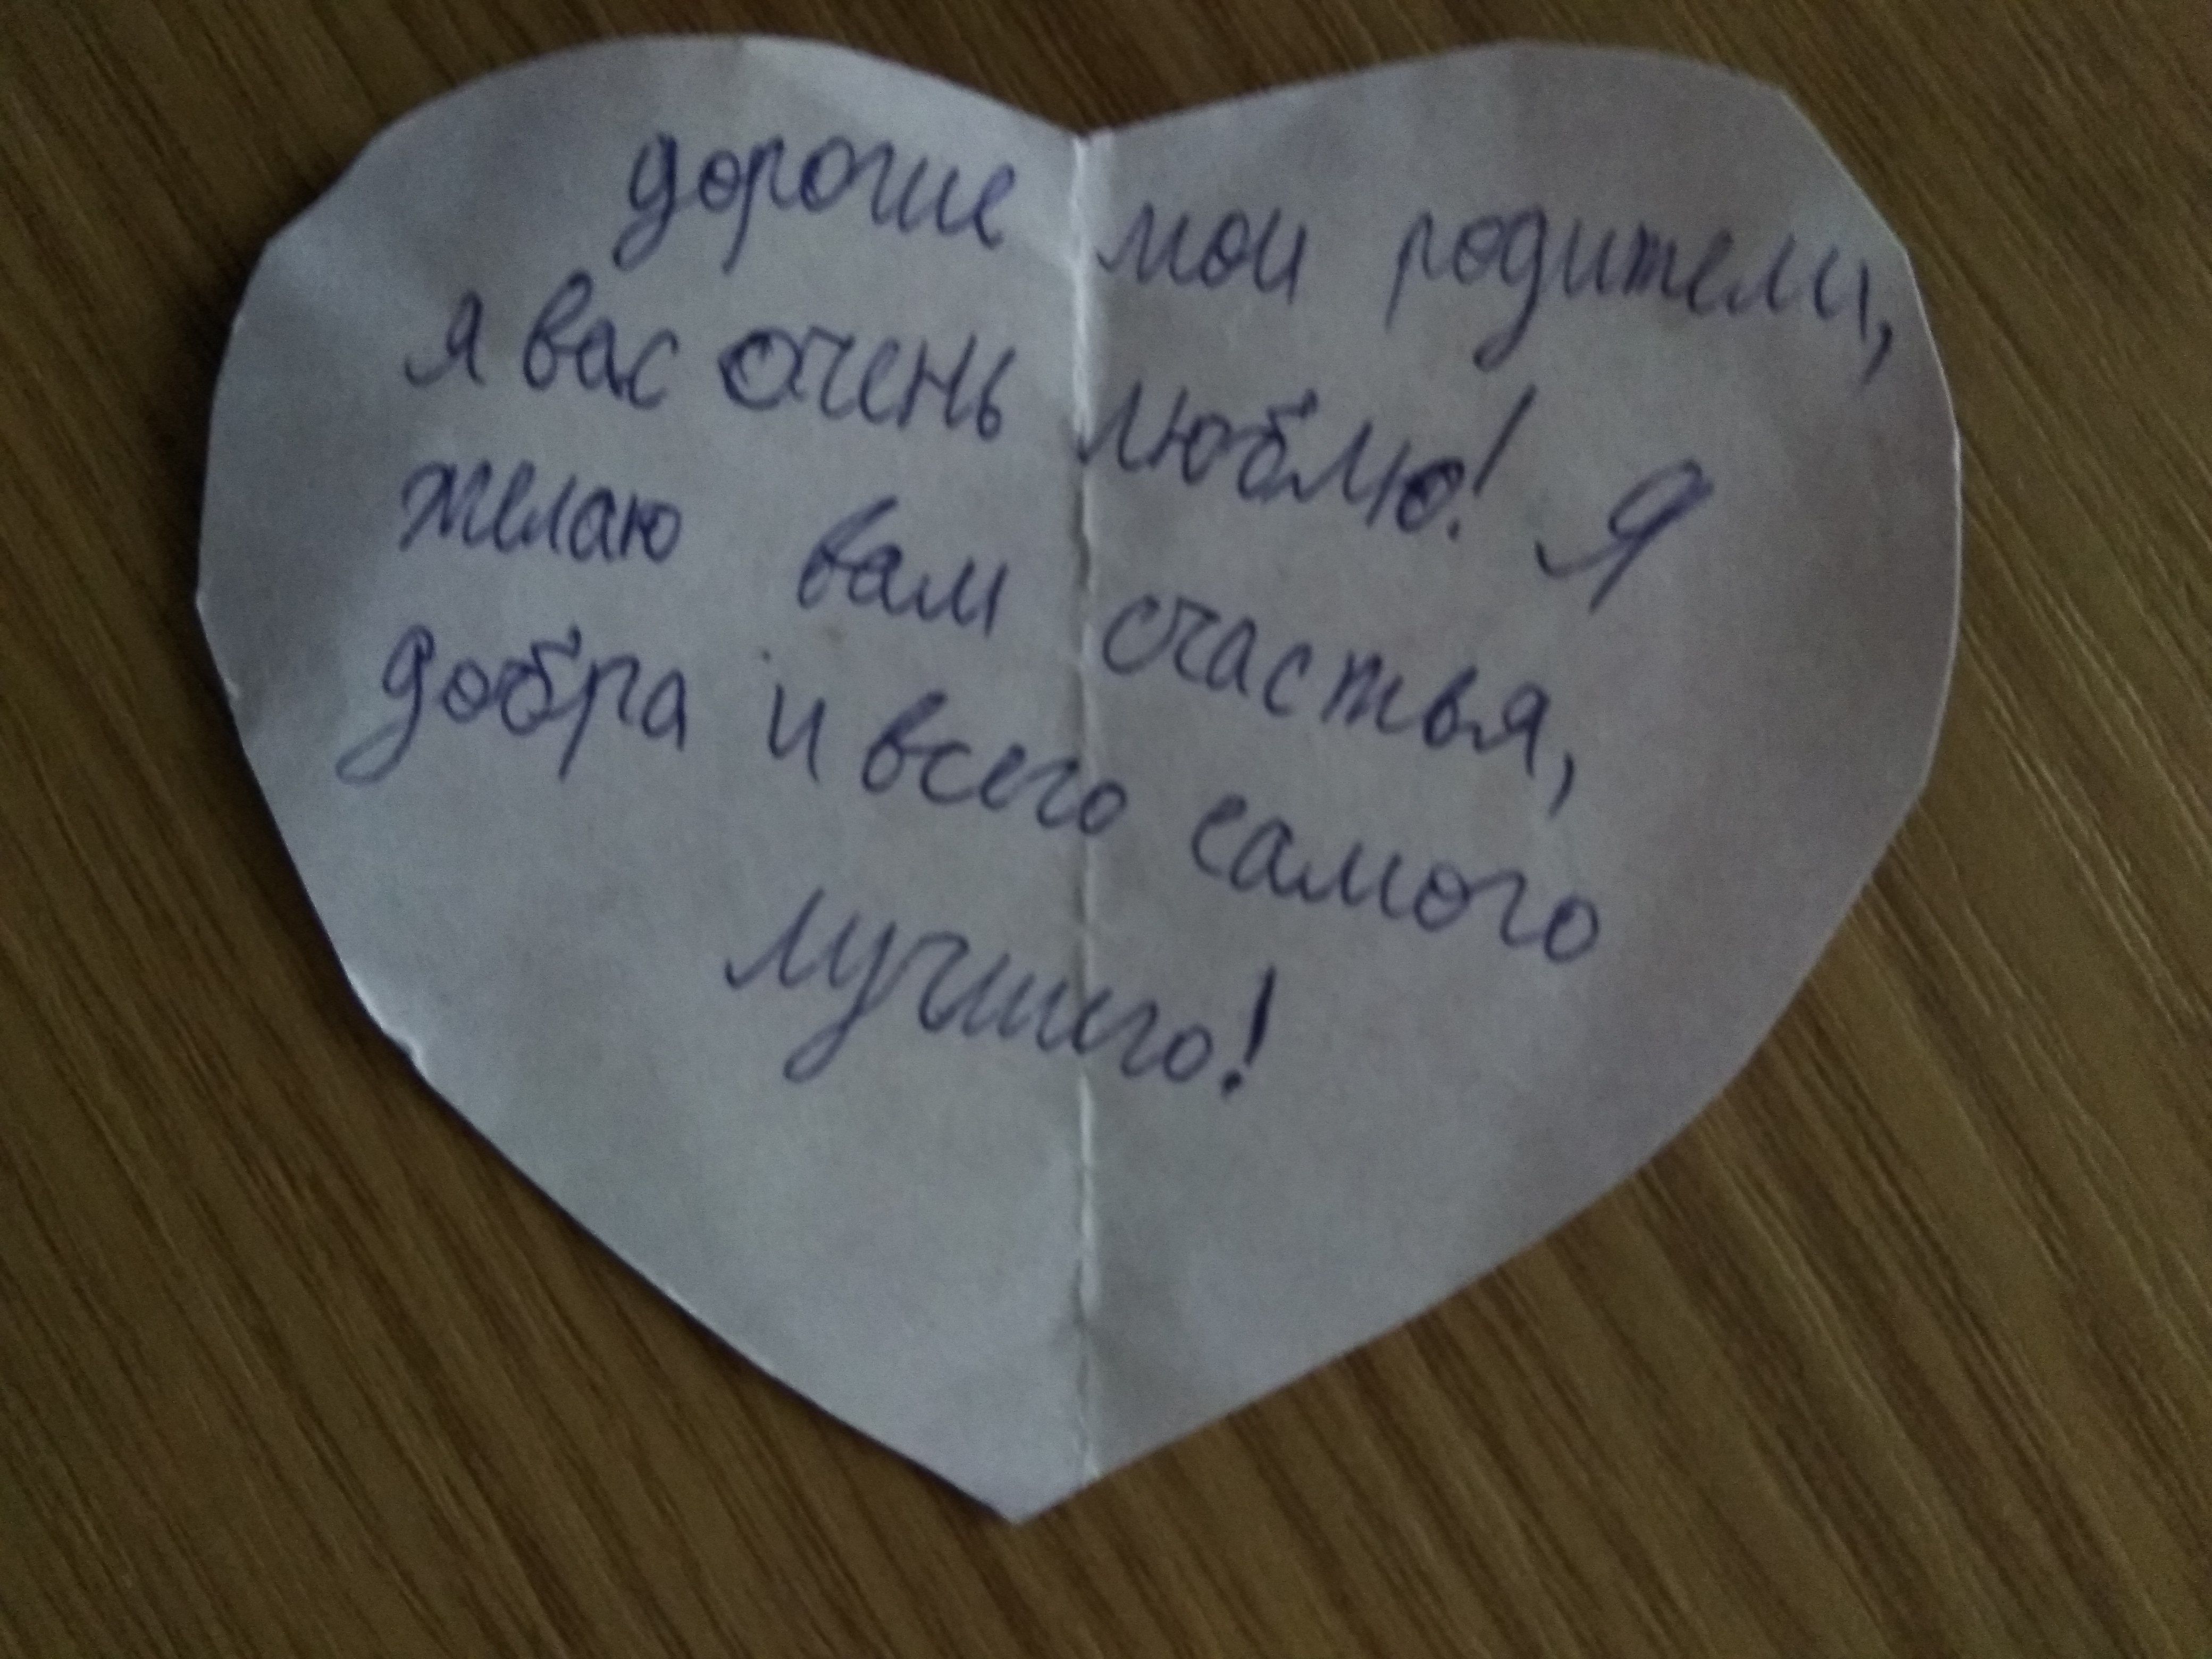 дорогие мои родители,
я вас очень люблю! Я
желаю вам счастья,
добра и всего самого
лучшего!